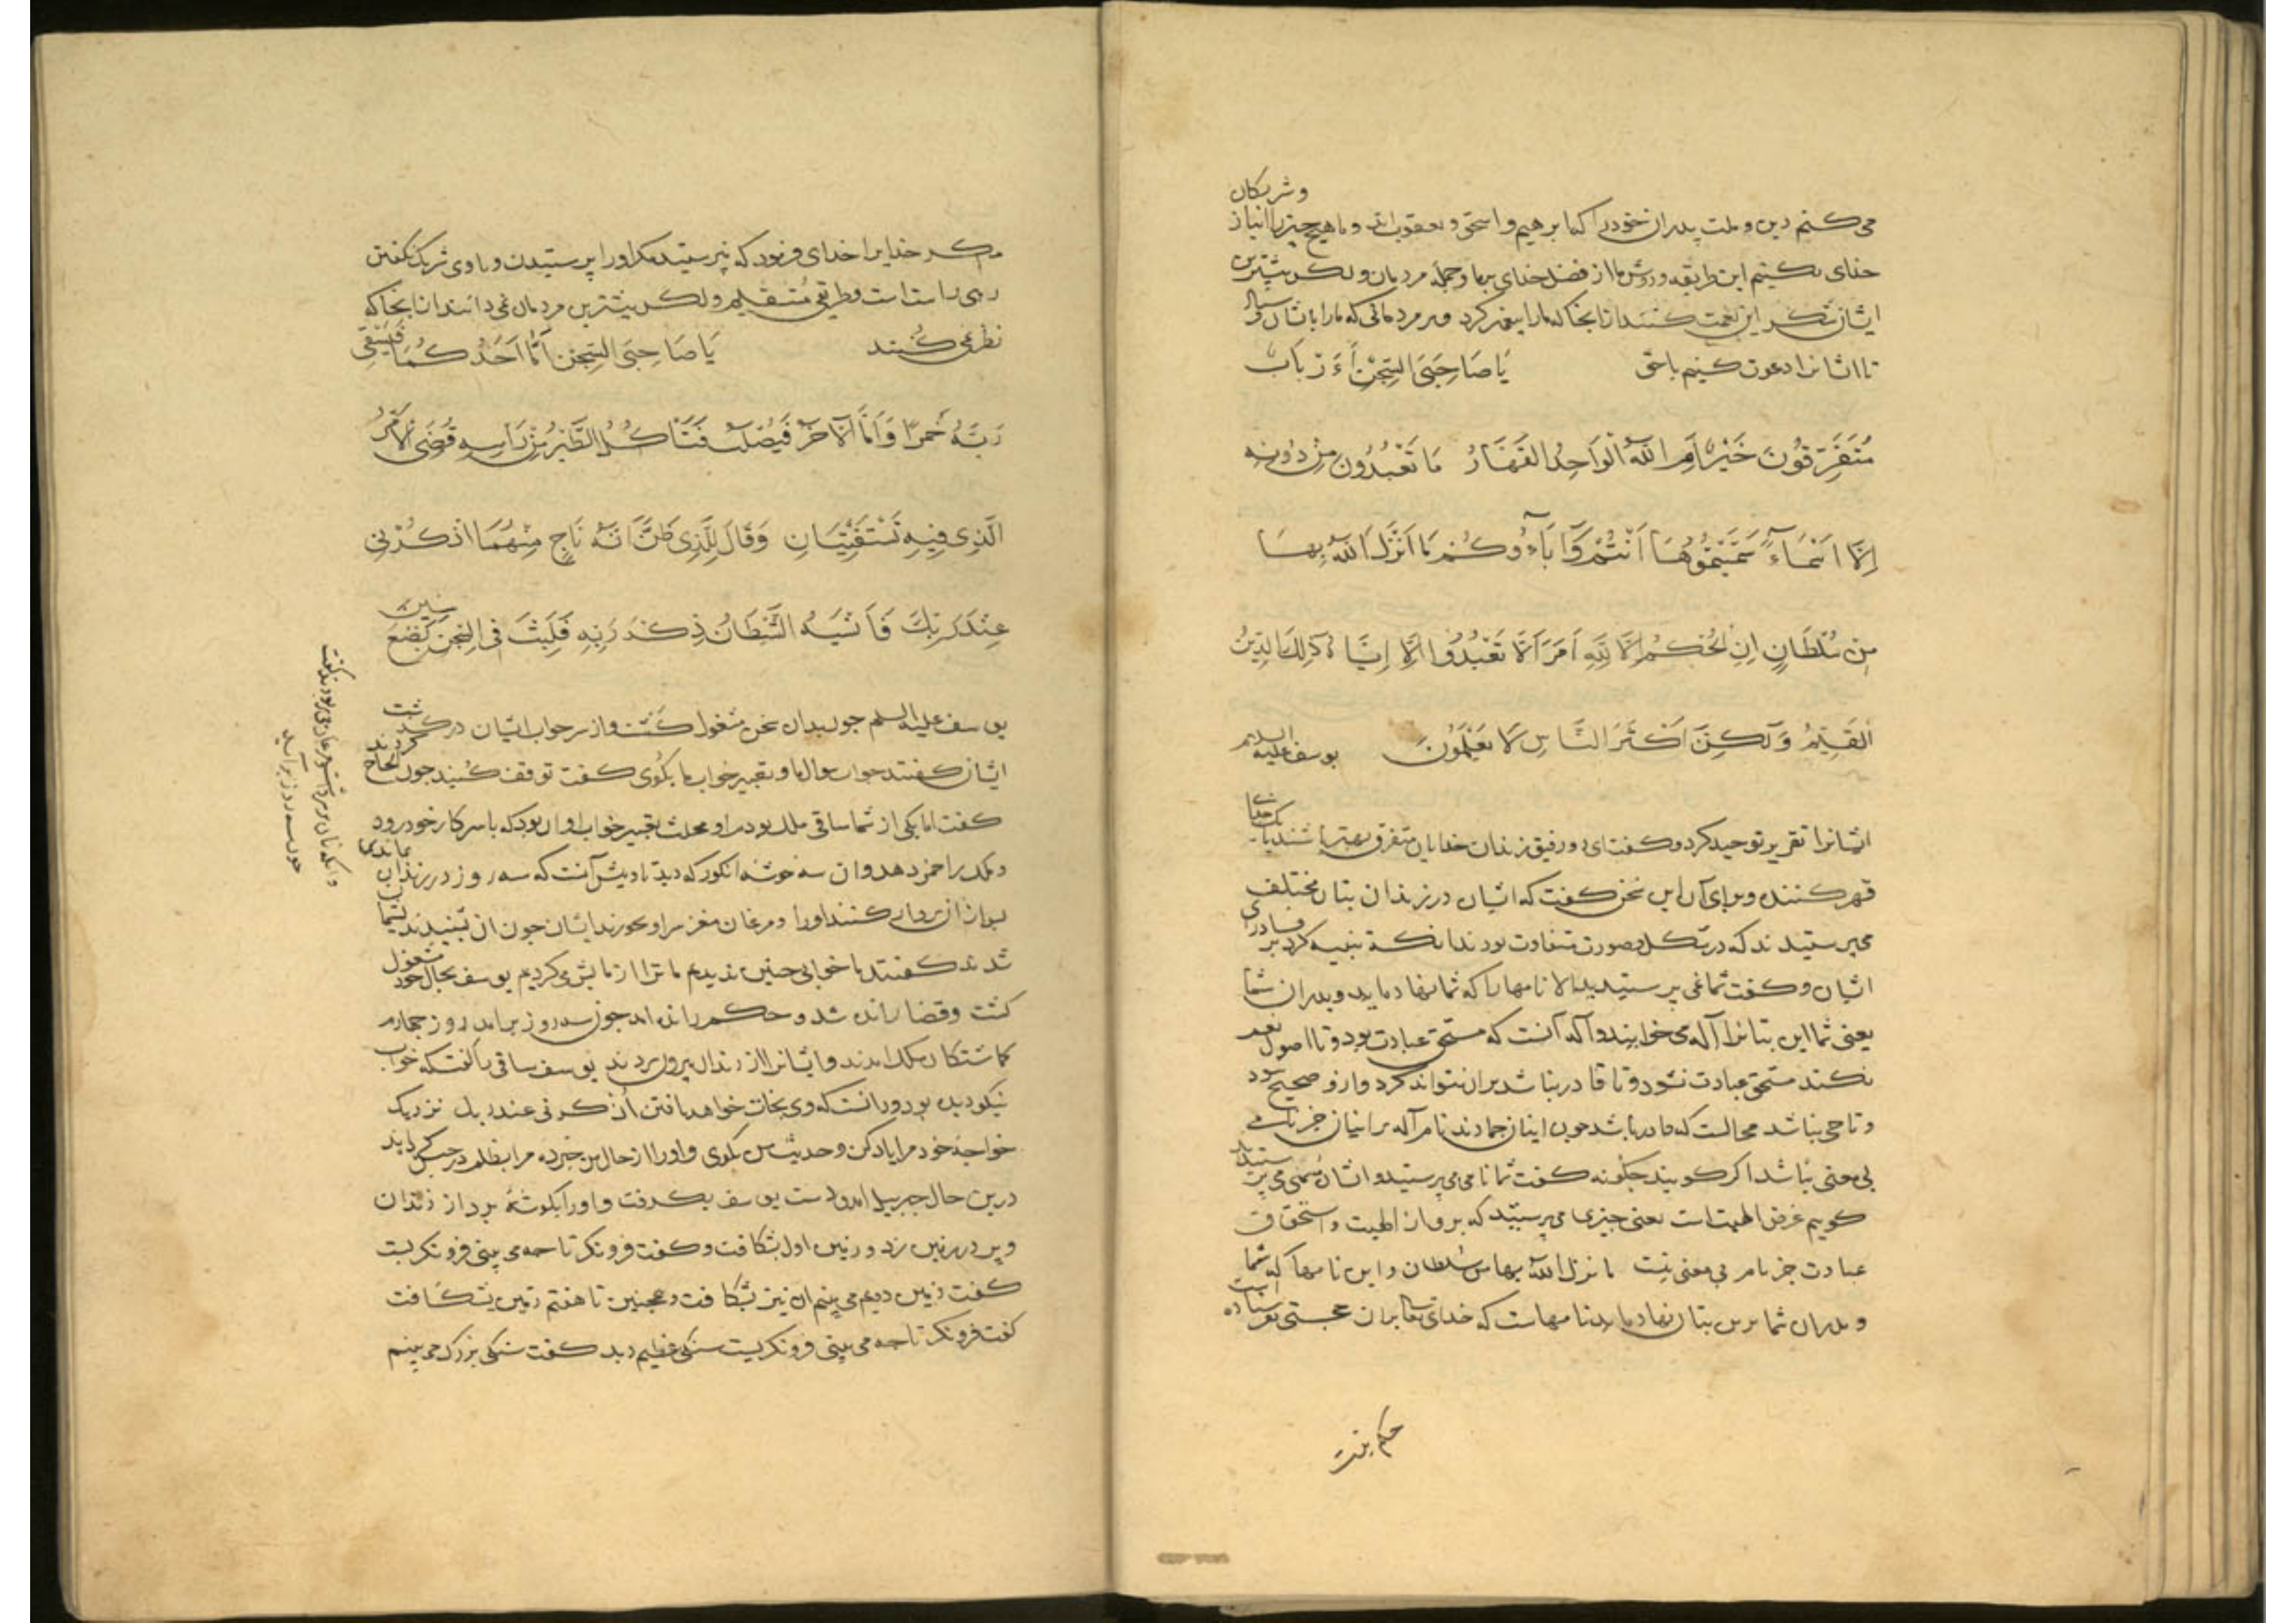 می کنیم دین و ملت پدران خود را که ابرهیم و اسحق و یعقوب اند و ما هیچ چیز را انباز
و شریکان
خدای نکنیم این طریقه و روش ما از فضل خدای بر ما و جمله مردمان و لکن بیشترین
ایشان شکر این نعمت نکنند از انجا که ما را پیغمبر کرد و بر مردمانی که ما را بایشان
تا ایشانرا دعوت کنیم باحق یَا صَاحِبَیِ السِّجْنِ أَءَرْبَابٌ
مُتَفَرِّقُونَ خَیْرٌ اَمِ اللّهُ الْوَاحِدُ الْقَهَّارُ مَا تَعْبُدُونَ مِنْ دُونِهِ
اِلَّا اَسْمَاءً سَمَّیْتُمُوهَا اَنْتُمْ وَآبَاءُوکُمْ مَا اَنْزَلَ اللّهُ بِهَا
مِنْ سُلْطَانٍ اِنِ الْحُکْمُ اِلَّا لِلّهِ اَمَرَ اَلَّا تَعْبُدُوا اِلَّا اِیَّاهُ ذَلِکَ الدِّینُ
الْقَیِّمُ وَلَکِنَّ اَکْثَرَ النَّاسِ لَا یَعْلَمُونَ یوسف علیه السلم
ایشانرا تقریر توحید کرد و گفت ای دو رفیق زندان خدایان متفرق بهتر باشند یا یک خدای
قهر کننده و برای آن این سخن گفت که ایشان در زندان بتان مختلف
می پرستیدند که در شکل و صورت متفاوت بودند انکه تنبیه کرد بر
ایشان و گفت شما نمی پرستید الا نامها را که شما نهاده اید و پدران شما
یعنی شما این بتانرا آله می خوانید و آله آنست که مستحق عبادت بود و تا اصول نعم
نکند مستحق عبادت نشود و تا قادر نباشد بران نتواند کرد و ازو صحیح نبود
و تا حی نباشد محالست که قادر باشد چون اینان جمادند نام آله بر اینان جز نامی
بی معنی نباشد اگر گویند چگونه گفت شما نامی می پرستید و ایشان مسمی می پرستیدند
گوییم غرض الهیت است یعنی چیزی می پرستید که برو از الهیت و استحقاق
عبادت جز نام بی معنی نیست ما نزل الله بها من سلطان و این نامها که شما
و پدران شما برین بتان نهاده اید نامهاست که خدای تعالی بران حجتی نفرستاده است
مگر خدایرا خدای فرمود که نپرستید مگر او را پرستیدن و با وی شریک نگفتن
رهی راست است و طریقی مستقیم و لکن بیشترین مردمان نمی دانند از انجا که
نظر نمی کنند یَا صَاحِبَیِ السِّجْنِ اَمَّا اَحَدُکُمَا فَیَسْقِی
رَبَّهُ خَمْرًا وَاَمَّا الْآخَرُ فَیُصْلَبُ فَتَأْکُلُ الطَّیْرُ مِنْ رَاسِهِ قُضِیَ الْاَمْرُ
الَّذِی فِیهِ تَسْتَفْتِیَانِ وَقَالَ لِلَّذِی ظَنَّ اَنَّهُ نَاجٍ مِنْهُمَا اذْکُرْنِی
عِنْدَ رَبِّکَ فَاَنْسَیهُ الشَّیْطَانُ ذِکْرَ رَبِّهِ فَلَبِثَ فِی السِّجْنِ بِضْعَ سِنِینَ
یوسف علیه السلم چون بدان سخن مشغول گشت و از سر جواب ایشان در گذشت
ایشان گفتند جواب سوال ما و تعبیر خواب ما بگوی گفت توقف کنید چون الحاح کردند
گفت اما یکی از شما ساقی ملک بود مر او محلت تعبیر خواب او آن بود که با سر کار خود رود
و ملک را خمر دهد و ان سه خوشه انگور که دید تاویلش آنست که سه روز در زندان بماند
او را و مرغان مغز سر او بخورند ایشان چون ان بشنیدند پشیمان
شدند گفتند ما خوابی چنین ندیدیم ما ترا ازمایش می کردیم یوسف بحال خود مشغول
گشت و قضا رانده شد و حکم رانده امد چون سه روز برامد روز چهارم
گماشتگان ملک امدند و ایشانرا از زندان بیرون بردند یوسف ساقی را گفت که خواب
نیکو دیده بود و دانست که وی نجات خواهد یافتن اُذکرنی عند ربک نزدیک
خواجه خود مرا یاد کن و حدیث من بگوی و او را از حال من خبر ده مرا بظلم در حبس
درین حال جبریل امد و دست یوسف بگرفت و او را بگوشه برد از زندان
و پر در زمین زد و زمین اول بشکافت و گفت فرو نگر تا چه می بینی فرو نگریست
گفت زمین دویم می بینم ان نیز بشکافت و همچنین تا هفتم زمین بشکافت
گفت فرو نگر تا چه می بینی فرو نگریست سنگی عظیم دید گفت سنگی بزرگ می بینم